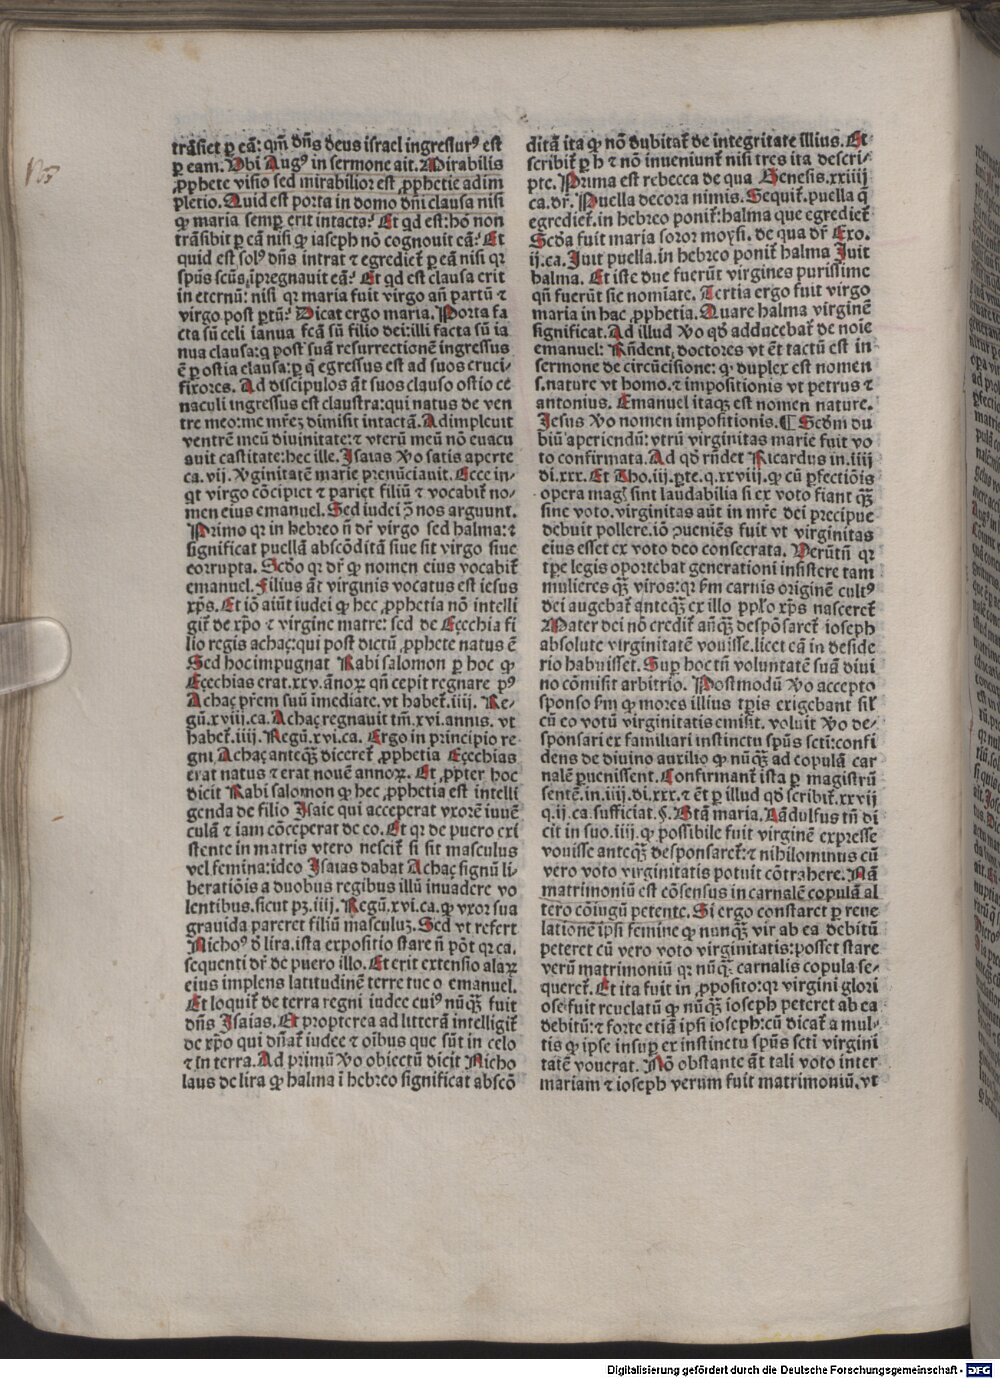 trāsiet ꝑ eā: qm̄ dn̄s deus israel ingressurꝰ est
ꝑ eam. Vbi Augꝰ in sermone ait. Mirabilis
ꝓphete visio sed mirabilior est ꝓphetie adim
pletio. Quid est porta in domo dn̄i clausa nisi
ꝙ maria semꝑ erit intacta? Et qd est: hō non
trāsibit ꝑ eā nisi ꝙ ioseph nō cognouit eā? Et
quid est solꝰ dn̄s intrat ⁊ egrediet̄ ꝑ eā nisi qꝛ
spūs scūs īpregnauit eā? Et qd est clausa erit
in eternū: nisi qꝛ maria fuit virgo añ partū ⁊
virgo post ꝑtū? Dicat ergo maria. Porta fa
cta sū celi ianua fcā sū filio dei: illi facta sū ia
nua clausa: q post suā resurrectionē ingressus
ē ꝑ ostia clausa: ꝑ q̄ egressus est ad suos cruci-
fixores. Ad discipulos āt suos clauso ostio ce
naculi ingressus est claustra: qui natus de ven
tre meo: me mr̄eꝫ dimisit intactā. Adimpleuit
ventrē meū diuinitate: ⁊ vterū meū nō euacu
auit castitate: hec ille. Isaias ꝟo satis aperte
ca. vij. ꝟginitatē marie prenūciauit. Ecce in-
qt virgo cōcipiet ⁊ pariet filiū ⁊ vocabit̄ no-
men eius emanuel. Sed iudei ꝯ nos arguunt.
Primo qꝛ in hebreo n̄ dr̄ virgo sed halma: ⁊
significat puellā abscōditā siue sit virgo siue
corrupta. Scd̄o qꝛ dr̄ ꝙ nomen eius vocabit̄
emanuel. Filius āt virginis vocatus est iesus
xp̄s. Et iō aiūt iudei ꝙ hec ꝓphetia nō intelli
git̄ de xp̄o ⁊ virgine matre: sed de Eȥechia fi
lio regis achaȥ: qui post dictū ꝓphete natus ē
Sed hoc impugnat Rabi salomon ꝑ hoc ꝙ
Eȥechias erat .xxv. ānoꝝ qn̄ cepit regnare pꝰ
Achaȥ pr̄em suū īmediate. vt habet̄ .iiij. Re-
gū. xviij. ca. Achaȥ regnauit tm̄ .xvi. annis. vt
habet̄ .iiij. Regū. xvi. ca. Ergo in principio re
gni Achaȥ anteqꝫ diceret̄ ꝓphetia Eȥechias
erat natus ⁊ erat nouē annoꝝ. Et ꝓpter hoc
dicit Rabi salomon ꝙ hec ꝓphetia est intelli
genda de filio Isaie qui acceperat vxorē iuuē
culā ⁊ iam cōceperat de eo. Et qꝛ de puero exi
stente in matris vtero nescit̄ si sit masculus
vel femina: ideo Isaias dabat Achaȥ signū li-
berationis a duobus regibus illū inuadere vo
lentibus. sicut pꝫ .iiij. Regū. xvi. ca. ꝙ vxor sua
grauida pareret filiū masculuꝫ. Sed vt refert
Nichoꝰ ď lira. ista expositio stare n̄ pōt qꝛ ca.
sequenti dr̄ de puero illo. Et erit extensio alaꝝ
eius implens latitudinē terre tue o emanuel.
Et loquit̄ de terra regni iudee cuiꝰ nūqꝫ fuit
dn̄s Isaias. Et propterea ad litterā intelligit̄
de xp̄o qui dn̄at̄ iudee ⁊ oībus que sūt in celo
⁊ in terra. Ad primū ꝟo obiectū dicit Nicho
laus de lira ꝙ halma ī hebreo significat abscō
ditā ita ꝙ nō dubitat̄ de integritate illius. Et
scribit̄ ꝑ h ⁊ nō inueniunt̄ nisi tres ita descri-
pte. Prima est rebecca de qua Genesis. xxiiij
ca. dr̄. Puella decora nimis. Sequit̄. puella q̄
egrediet̄. in hebreo ponit̄: halma que egrediet̄
Scd̄a fuit maria soror moysi. de qua dr̄ Exo.
ij. ca. Iuit puella. in hebreo ponit̄ halma Iuit
halma. Et iste due fuerūt virgines purissime
qn̄ fuerūt sic nomīate. Tertia ergo fuit virgo
maria in hac ꝓphetia. Quare halma virginē
significat. Ad illud ꝟo qd̄ adducebat̄ de noīe
emanuel: Rn̄dent doctores vt ēt tactū est in
sermone de circūcisione: ꝙ duplex est nomen
s. nature vt homo. ⁊ impositionis vt petrus ⁊
antonius. Emanuel itaqꝫ est nomen nature.
Iesus ꝟo nomen impositionis. ¶ Scd̄m du
biū aperiendū: vtrū virginitas marie fuit vo
to confirmata. Ad qd̄ rn̄det Ricardus in .iiij
di. xxx. Et Tho. iij. ꝑte. q. xxviij. ꝙ cū ꝑfectiōis
opera magꝭ sint laudabilia si ex voto fiant qꝫ
sine voto. virginitas aūt in mr̄e dei precipue
debuit pollere. iō ꝯueniēs fuit vt virginitas
eius esset ex voto deo consecrata. Verūtn̄ qꝛ
tꝑe legis oportebat generationi insistere tam
mulieres qꝫ viros: qꝛ ẜm carnis originē cultꝰ
dei augebat̄ anteqꝫ ex illo ppl̄o xp̄s nasceret̄
Mater dei nō credit̄ añqꝫ despōsaret̄ ioseph
absolute virginitatē vouisse. licet eā in deside
rio habuisset. Suꝑ hoc tn̄ voluntatē suā diui
no cōmisit arbitrio. Postmodū ꝟo accepto
sponso ẜm ꝙ mores illius tꝑis exigebant sil̄
cū eo votū virginitatis emisit. voluit ꝟo de-
sponsari ex familiari instinctu spūs scti: confi
dens de diuino auxilio ꝙ nūqꝫ ad copulā car
nalē ꝑuenissent. Confirmant̄ ista ꝑ magistrū
sentē. in. iiij. di. xxx. ⁊ ēt ꝑ illud qd̄ scribit̄. xxvij
q. ij. ca. sufficiat. §. Btā maria. Lādulfus tn̄ di
cit in suo. iiij. ꝙ possibile fuit virginē expresse
vouisse anteqꝫ desponsaret̄: ⁊ nihilominus cū
vero voto virginitatis potuit cōtrahere. Nā
matrimoniū est cōsensus in carnalē copulā al
tero cōiugū petente. Si ergo constaret ꝑ reue
lationē ipsi femine ꝙ nunqꝫ vir ab ea debitū
peteret cū vero voto virginitatis: posset stare
verū matrimoniū qꝛ nūqꝫ carnalis copula se-
queret̄. Et ita fuit in ꝓposito: qꝛ virgini glori
ose fuit reuelatū ꝙ nūqꝫ ioseph peteret ab ea
debitū: ⁊ forte etiā ipsi ioseph: cū dicat̄ a mul-
tis ꝙ ipse insuꝑ ex instinctu spūs scti virgini
tatē vouerat. Nō obstante āt tali voto inter
mariam ⁊ ioseph verum fuit matrimoniū. vt
Digitalisierung gefördert durch die Deutsche Forschungsgemeinschaft - DFG